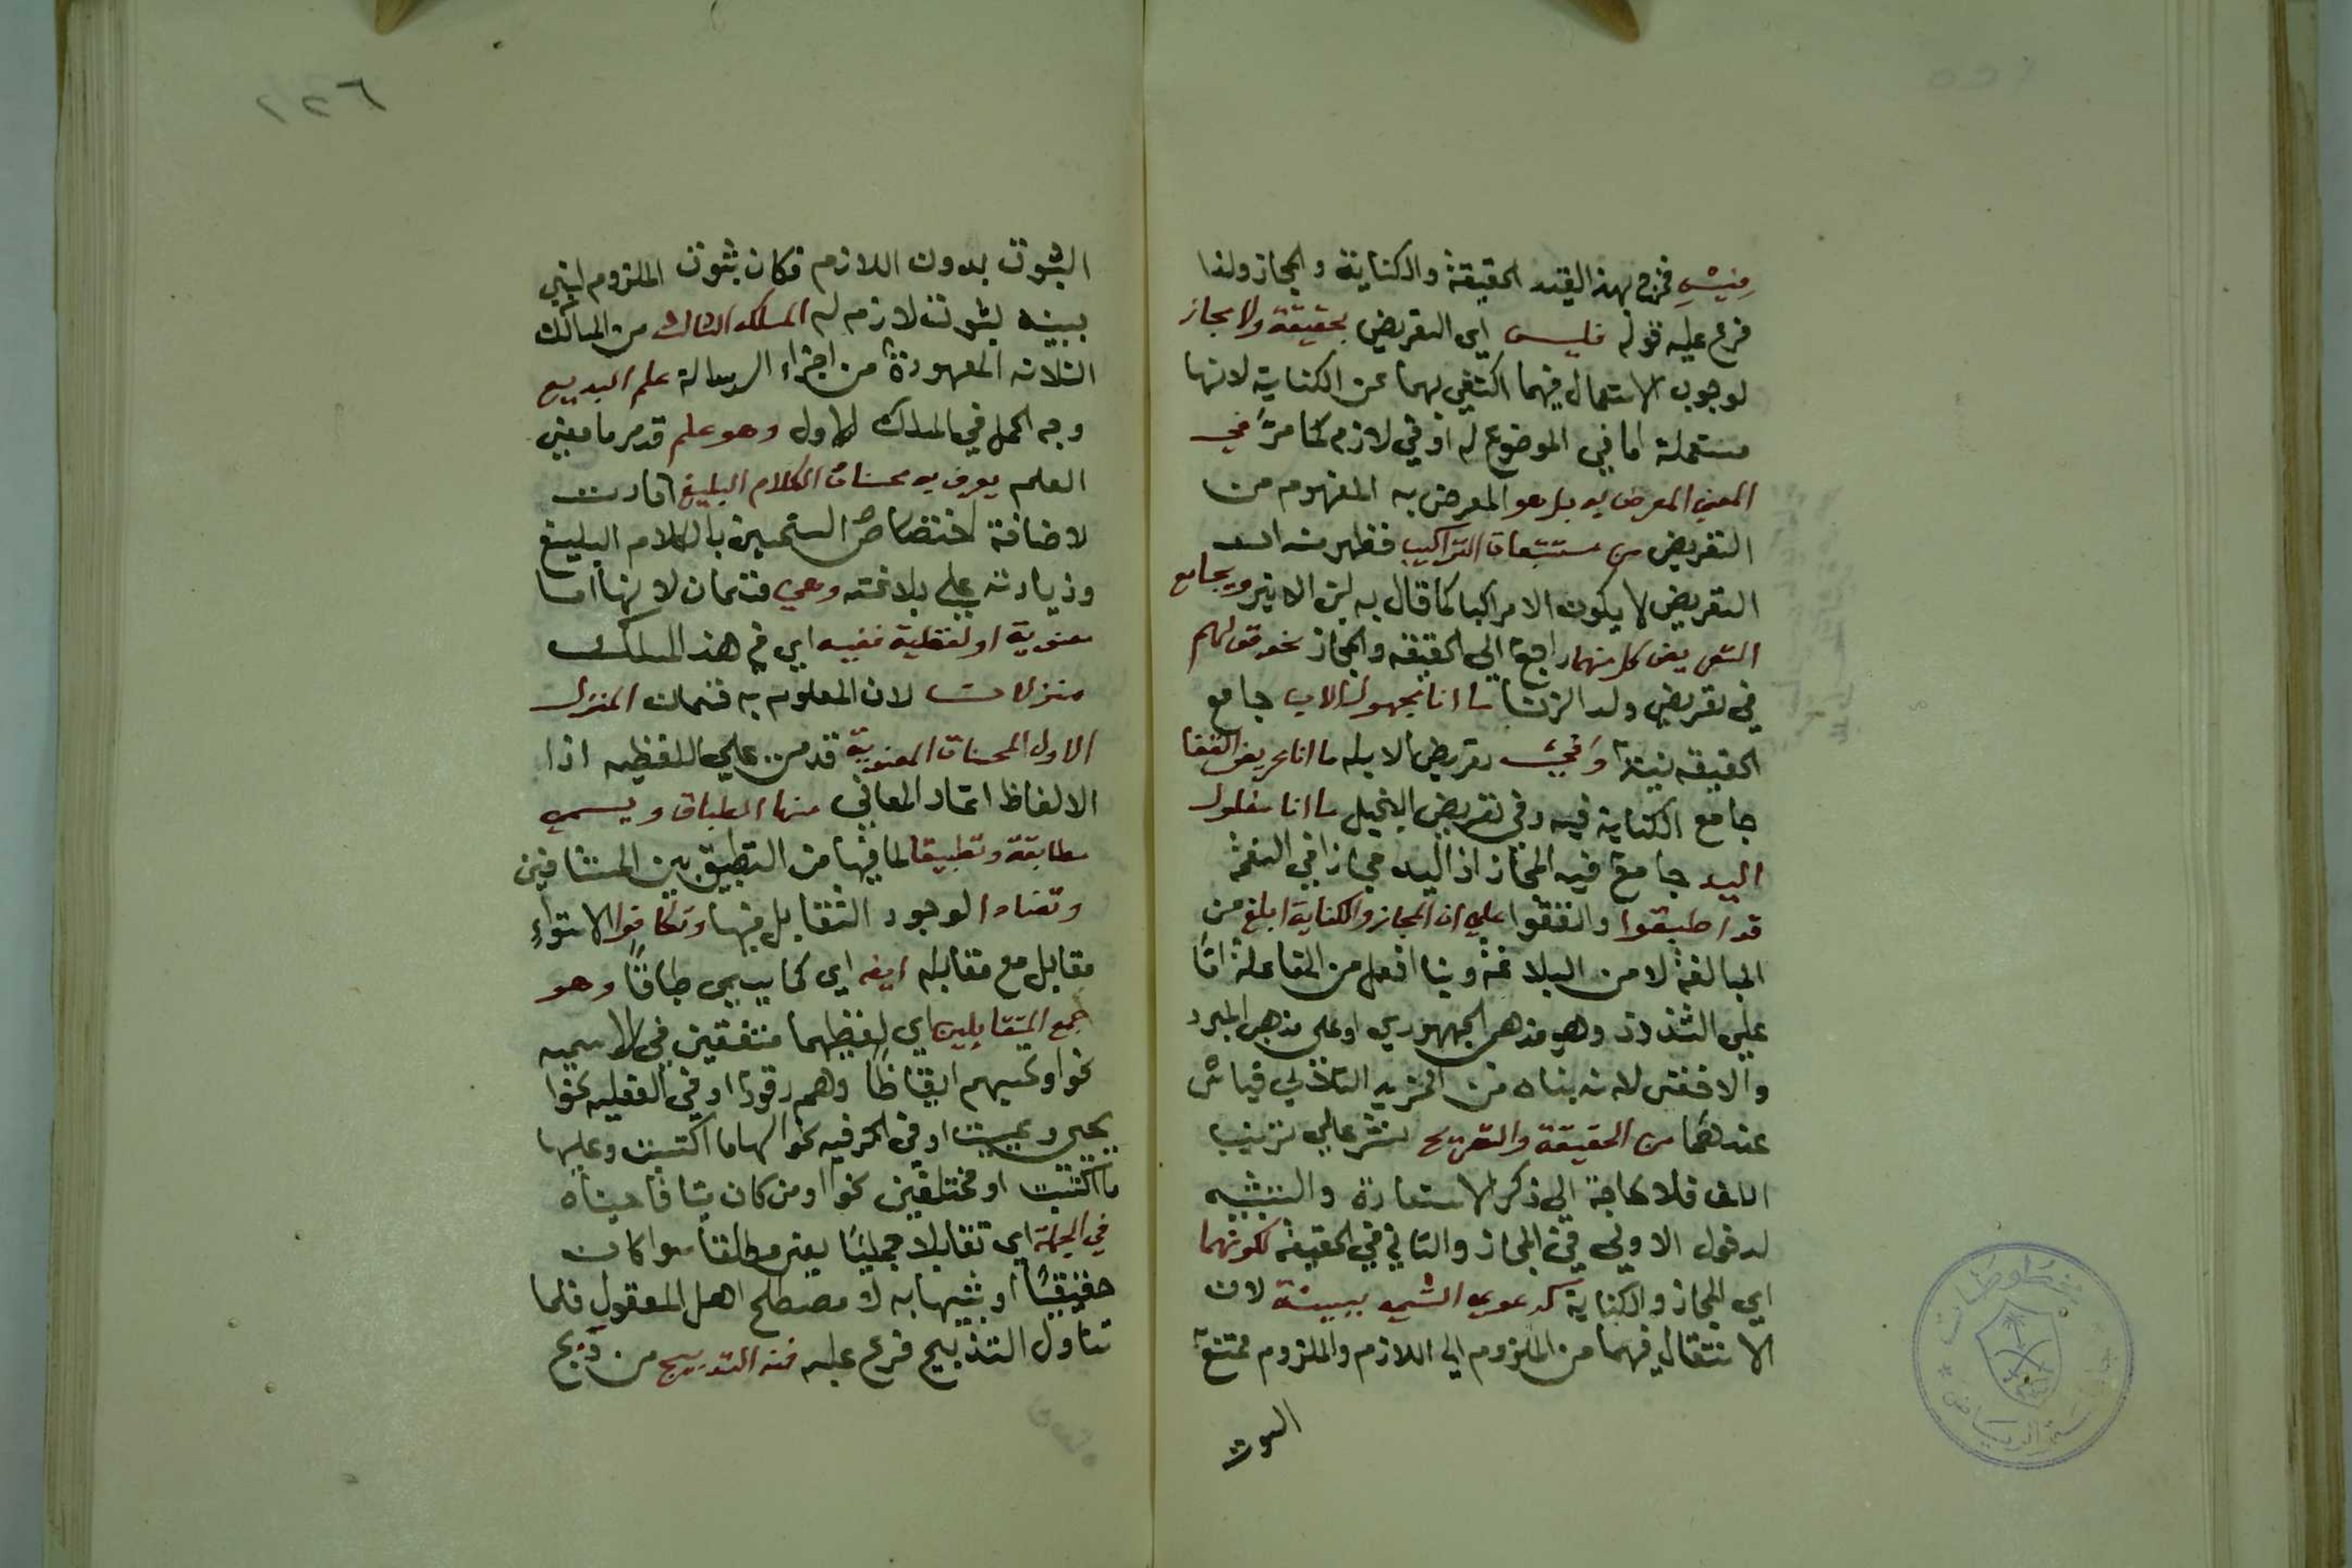 فخرج بهذا القيد الحقيقة والكناية والمجاز ولذا
فرع عليه قوله فليس اي التعريض بحقيقة ولا مجاز
لوجوب الاستعمال فيهما اكتفي بهما عن الكناية لانها
مستعملة اما في الموضوع له او في لازم كما مر في
المعني المعرض به بل هو المعرض به المفهوم من
التعريض من مستتبعات التراكيب فظهر
التعريض لا يكون الا مركبا كما قال به ابن الاثير ويجامع
التعريض كل منهما راجع الي الحقيقه والمجاز نحو قولهم
في تعريض ولد الزنا ما انا بمجهول الاب جامع
الحقيقه وفي تعريض الابله ما انا عريض القفا
جامع الكناية فيه وفي تعريض البخيل ما انا مغلول
اليد جامع فيه المجاز اذ اليد مجاز في النعمة
قد اطبقوا واتفقوا علي ان المجاز والكناية ابلغ من
المبالغة لا من البلاغة وبنا افعل من المفاعلة اما
علي الشذوذ وهو مذهب الجمهوري او علي مذهب المبرد
والاخفش لانه بناه من المزيد الثلاثي قياس
عندهما من الحقيقة والتصريح نشر علي ترتيب
اللف فلا حاجة الي ذكر الاستعارة والتشبيه
لدخول الاولي في المجاز والثاني في الحقيقه لكونهما
اي المجاز والكناية كدعوي الشي ببينة لان
الانتقال فيهما من الملزوم الي اللازم والملزوم ممتنع
الثبوت
١٢٦
الثبوت بدون اللازم فكان ثبوت الملزوم
ببينه لثبوت لازم له المسلك الثالث من المسالك
الثلاثه المعهودة من اجزاء الرسالة علم البديع
وجه الحمل في المسلك الاول وهو علم قد مر ما معني
العلم يعرف به محسنات الكلام البليغ افادت
لاضافة اختصاص التحسين بالكلام البليغ
وزيادته علي بلاغته وهي قسمان لانها اما
معنوية او لفظية ففيه اي في هذا المسلك
منزلان لان المعلوم به قسمان المنزل
الاول المحسنات المعنوية قدمن علي اللفظيه اذا
الالفاظ المعاني منها الطباق ويسمي
مطابقة وتطبيقا لما فيها من التطبيق بين المتنافيين
وتضادا لوجود التقابل فيها وتكافوا لاستواء
مقابل مع مقابله ايضه اي كما يسمي طباقا وهو
جمع المتقابلين اي لفظيهما متفقين في الاسميه
نحو وتحسبهم ايقاظا وهم رقود او في الفعليه نحو
يحيي ويميت او في الحرفيه نحو لها ما اكتسبت وعليها
ما اكتسبت او مختلفين نحو اومن كان ميتا فاحييناه
في الجملة اي تقابلا جمليا يعني مطلقا سوا كان
حقيقيا او شبيها به لا مصطلح اهل المعقول فلما
تناول التذبيج فرع عليه فمنه التدبيج من دبج